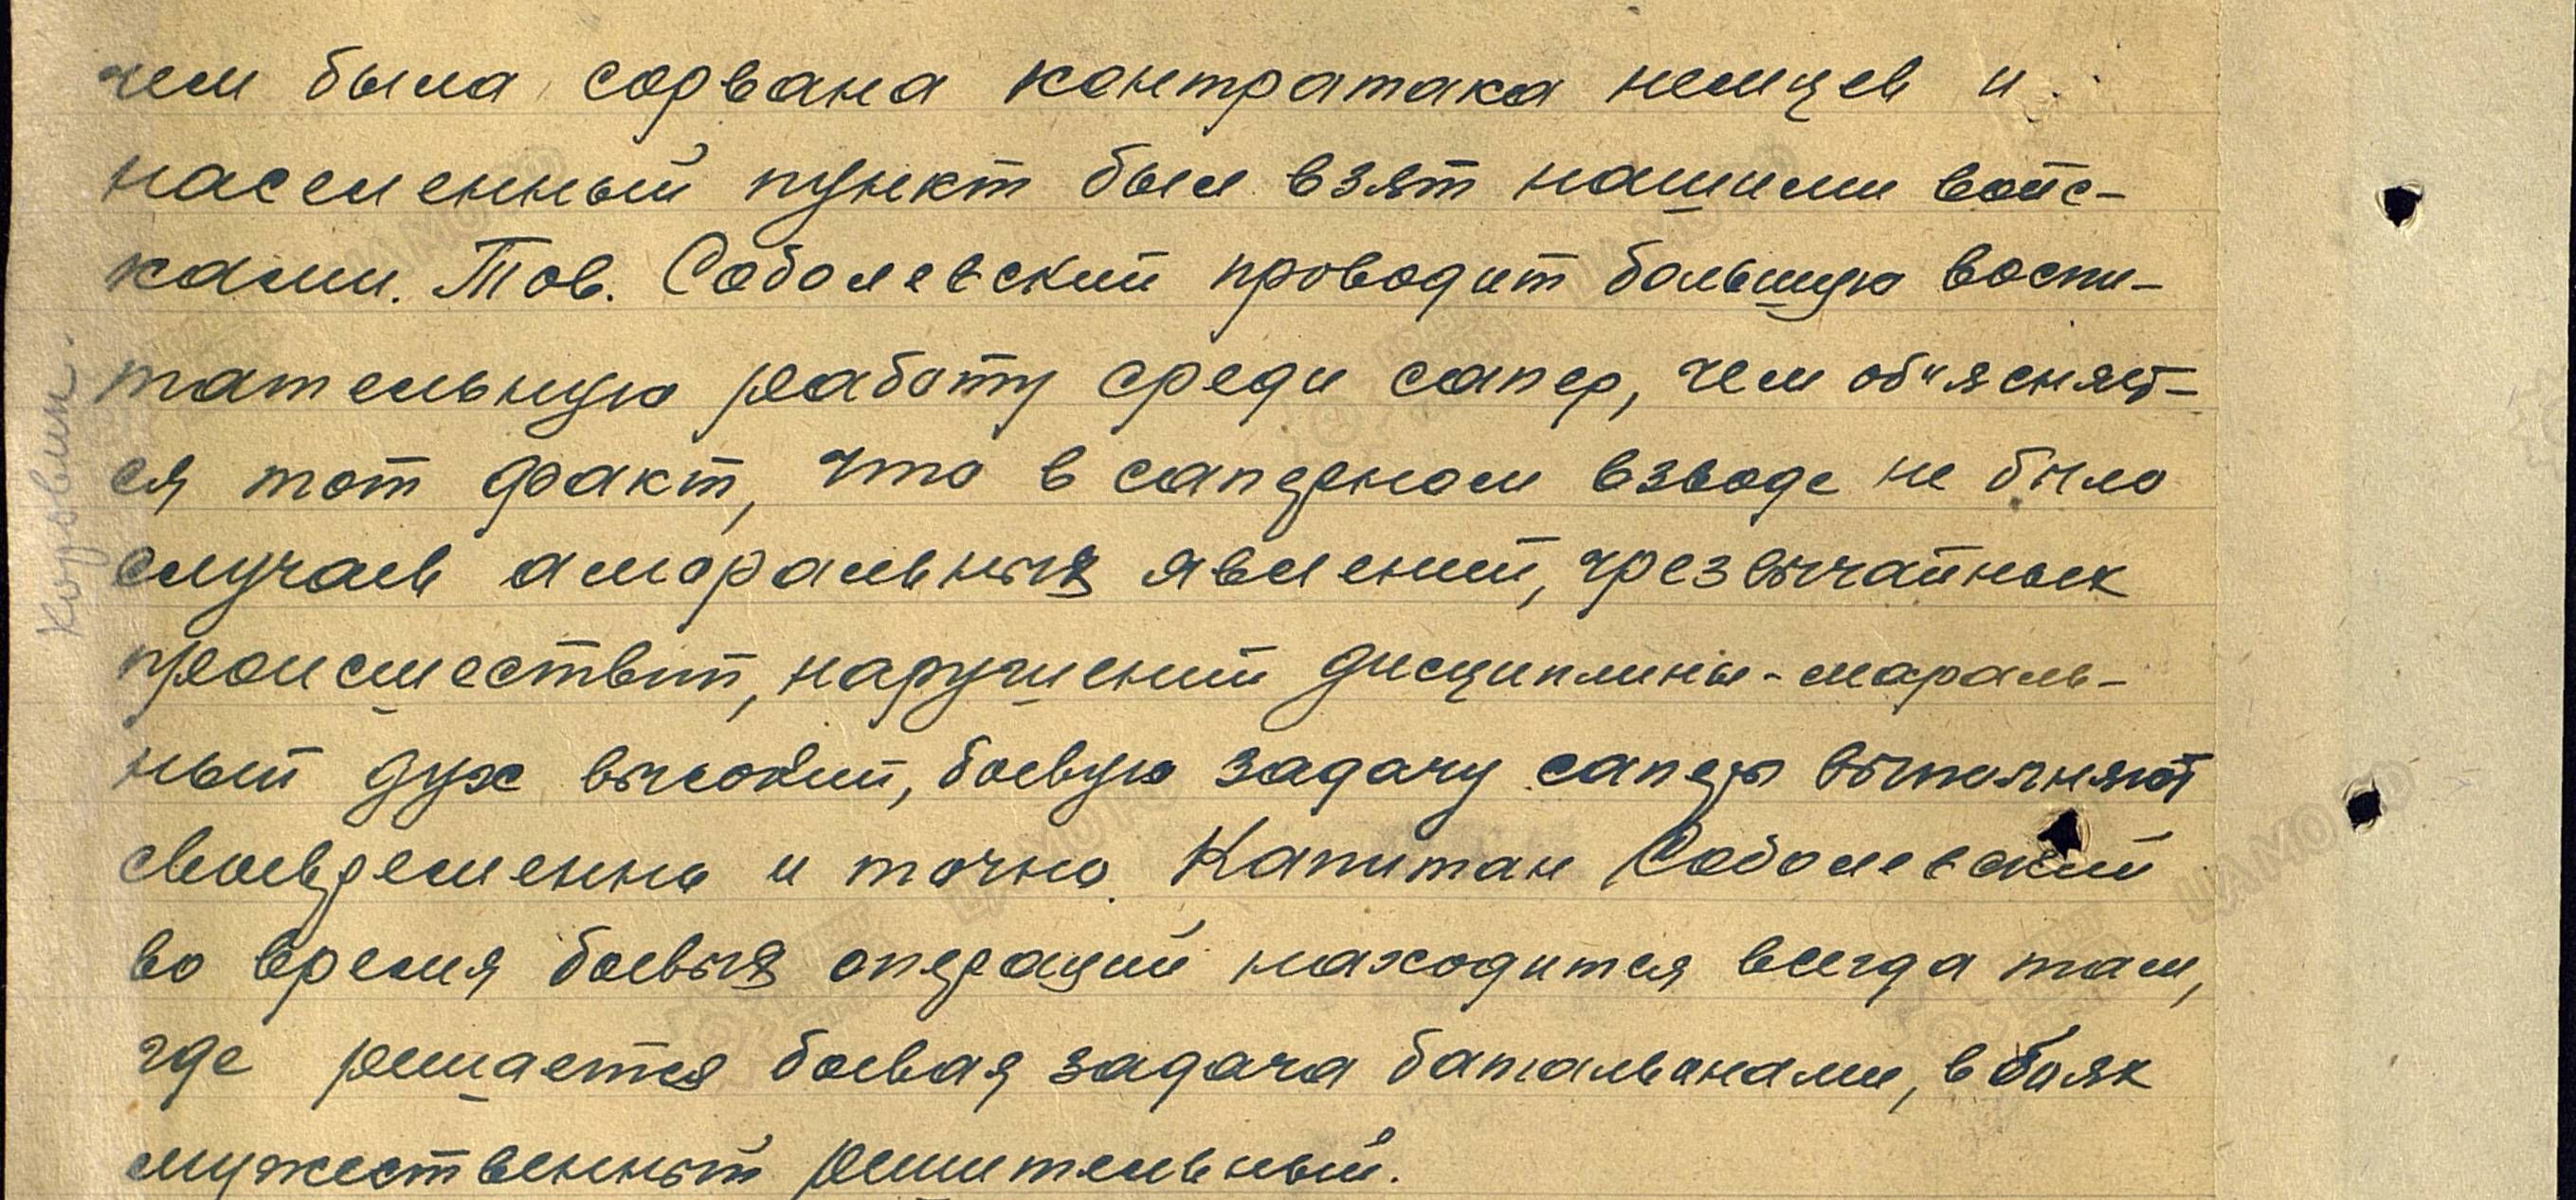 чем была сорвана контратака немцев и
населенный пункт был взят нашими войс-
ками. Тов. Соболевский проводит большую воспи-
тательную работу среди сапер, чем об"ясняет-
ся тот факт, что в саперном взводе не было
случаев аморальных явлений, чрезвычайных
происшествий, нарушений дисциплины - мораль-
ный дух высокий, боевую задачу саперы выполняют
своевременно и точно. Капитан Соболевский
во время боевых операций находится всегда там,
где решается боевая задача батальонами, в боях
мужественный решительный.
ЦАМО РФ